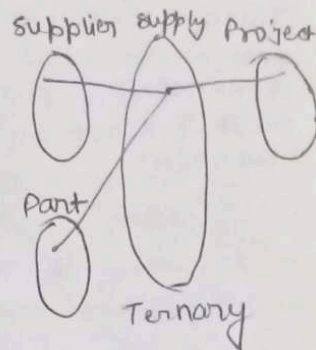 supplier supply Project
Part
Ternary